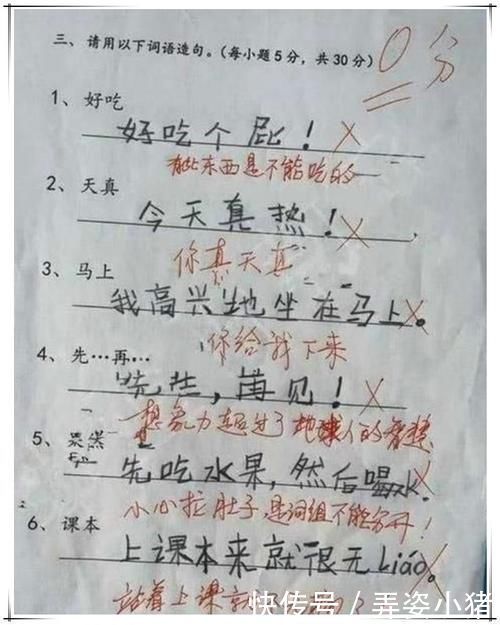 三、请用以下词语造句。(每小题5分，共30分)
0分
1、好吃
好吃个屁！
有些东西是不能吃的
2、天真
今天真热！
你真天真
3、马上
我高兴地坐在马上。
你给我下来
4、先…再…
先生，再见！
想象力超过了地球人的智慧
5、
先吃水果，然后喝水。
小心拉肚子，是词组不能分开！
6、课本
上课本来就很无liáo。
站着上课就
快传号/弄姿小猪